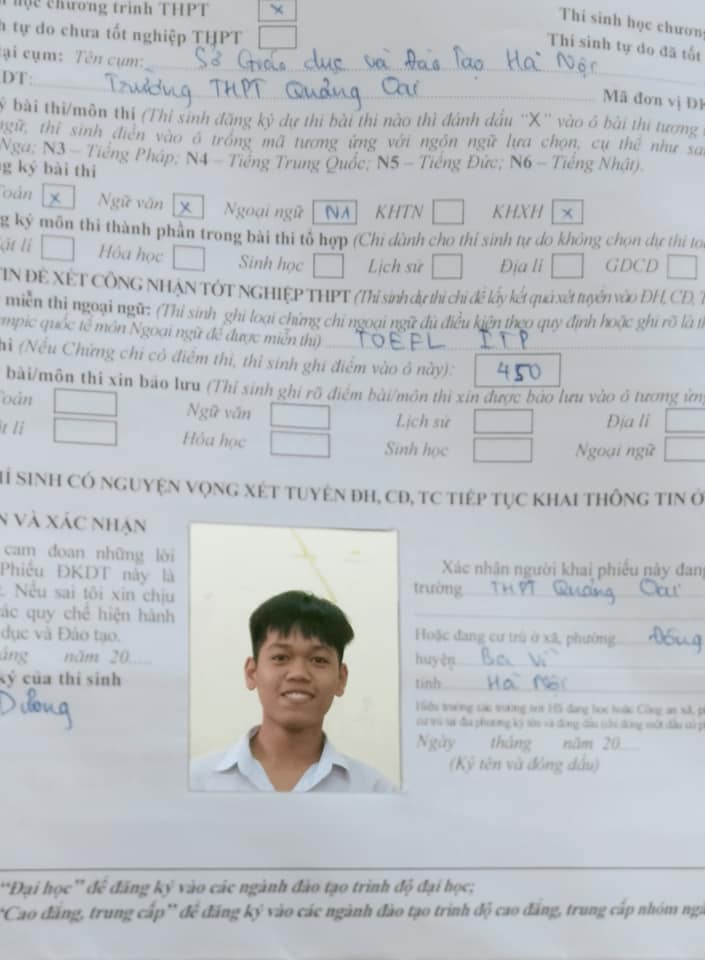 học chương trình THPT x Thí sinh học chương
h tự do chưa tốt nghiệp THPT Thí sinh tự do đã tốt
ại cụm: Tên cụm: Sở Giáo dục và Đào Tạo Hà Nội
DT: Trường THPT Quảng Oai Mã đơn vị ĐK
ý bài thi/môn thi (Thí sinh đăng ký dự thi bài thi nào thì đánh dấu "X" vào ô bài thi tương
ngữ, thí sinh điền vào ô trống mã tương ứng với ngôn ngữ lựa chọn, cụ thể như sa
Nga; N3 – Tiếng Pháp; N4 – Tiếng Trung Quốc; N5 – Tiếng Đức; N6 – Tiếng Nhật).
g ký bài thi
Toán x Ngữ văn x Ngoại ngữ N1 KHTN KHXH x
g ký môn thi thành phần trong bài thi tổ hợp (Chỉ dành cho thí sinh tự do không chọn dự thi to
ật lí Hóa học Sinh học Lịch sử Địa lí GDCD
TIN ĐỂ XÉT CÔNG NHẬN TỐT NGHIỆP THPT (Thí sinh dự thi chỉ để lấy kết quả xét tuyển vào ĐH, CĐ, T
miễn thi ngoại ngữ: (Thí sinh ghi loại chứng chỉ ngoại ngữ đủ điều kiện theo quy định hoặc ghi rõ là th
mpic quốc tế môn Ngoại ngữ để được miễn thi) TOEFL ITP
hỉ (Nếu Chứng chỉ có điểm thi, thí sinh ghi điểm vào ô này): 450
bài/môn thi xin bảo lưu (Thí sinh ghi rõ điểm bài/môn thi xin được bảo lưu vào ô tương ứng
Toán Ngữ văn Lịch sử Địa lí
ật lí Hóa học Sinh học Ngoại ngữ
HÍ SINH CÓ NGUYỆN VỌNG XÉT TUYỂN ĐH, CĐ, TC TIẾP TỤC KHAI THÔNG TIN Ở
N VÀ XÁC NHẬN
cam đoan những lời
Phiếu ĐKDT này là
. Nếu sai tôi xin chịu
ác quy chế hiện hành
dục và Đào tạo.
áng năm 20.....
ký của thí sinh
Dũng
Xác nhận người khai phiếu này đang
trường THPT Quảng Oai
Hoặc đang cư trú ở xã, phường Đông
huyện Ba Vì
tỉnh Hà Nội
Hiệu trưởng các trường nơi HS đang học hoặc Công an xã, p
cư trú tại địa phương ký tên và đóng dấu
Ngày tháng năm 20....
(Ký tên và đóng dấu)
"Đại học" để đăng ký vào các ngành đào tạo trình độ đại học;
"Cao đẳng, trung cấp" để đăng ký vào các ngành đào tạo trình độ cao đẳng, trung cấp nhóm ngà